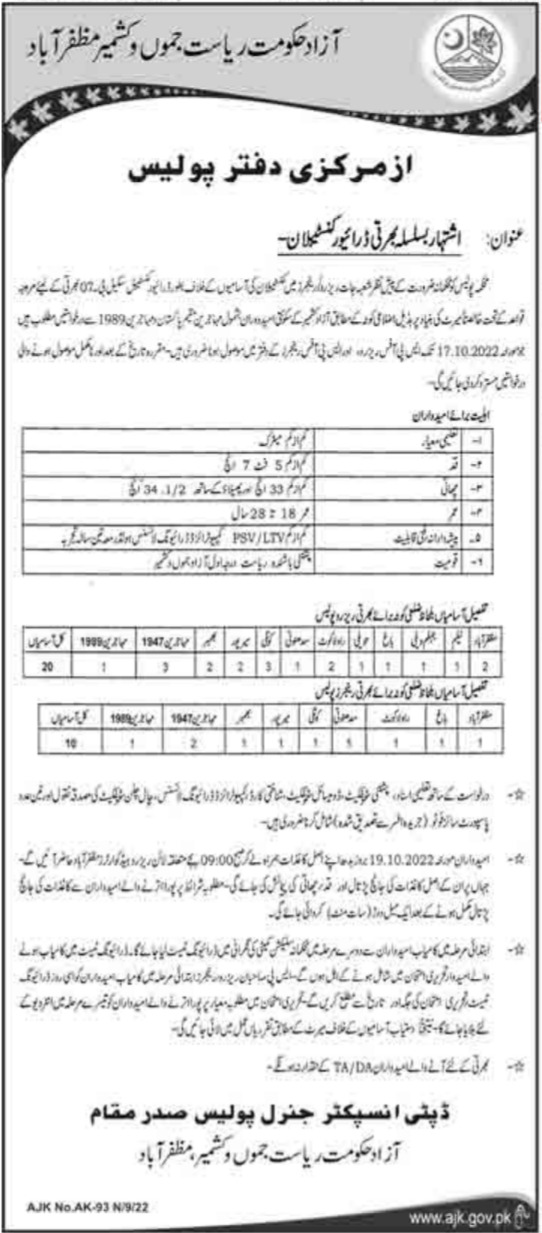 آزاد حکومت ریاست جموں و کشمیر مظفر آباد
از مرکزی دفتر پولیس
عنوان: اشتہار بسلسلہ بھرتی ڈرائیور کنسٹیبلان-
محکمہ پولیس کو محکمانہ ضرورت کے پیش نظر شعبہ جات ریزرو/رینجرز میں کنسٹیبلان کی آسامیوں کے خلاف بطور ڈرائیور کنسٹیبل سکیل بی۔07 بھرتی کے لیئے مروجہ
قواعد کے تحت خالصتاً میرٹ کی بنیاد پر بذیل اضلاعی کوٹہ کے مطابق آزاد کشمیر کے سکونتی امیدواران بشمول مہاجرین مقیم پاکستان و مہاجرین 1989 سے درخواستیں مطلوب ہیں
جو مورخہ 17.10.2022 تک ایس پی آفس ریزرو اور ایس پی آفس رینجرز کے دفتر میں موصول ہونا ضروری ہیں- مقررہ تاریخ کے بعد اور نامکمل موصول ہونے والی
درخواستیں مسترد کر دی جائیں گی-
اہلیت برائے امیدواران
۱- تعلیمی معیار کم از کم میٹرک
۲- قد کم از کم 5 فٹ 7 انچ
۳- چھاتی کم از کم 33 انچ اور پھیلاؤ کے ساتھ 34.1/2 انچ
۴- عمر عمر 18 تا 28 سال
۵- پیشہ وارانہ/فنی قابلیت کم از کم PSV/LTV کمپیوٹرائزڈ ڈرائیونگ لائسنس ہولڈر معہ تین سالہ تجربہ
۶- قومیت پشتنی باشندہ ریاست درجہ اول آزاد جموں و کشمیر
تفصیل آسامیاں بلحاظ ضلعی کوٹہ برائے بھرتی ریزرو پولیس
مظفرآباد نیلم جہلم ویلی باغ حویلی راولاکوٹ سدھنوتی کوٹلی میرپور بھمبر مہاجرین 1947 مہاجرین 1989 کل آسامیاں
2 1 1 1 1 2 1 3 2 2 3 1 20
تفصیل آسامیاں بلحاظ ضلعی کوٹہ برائے بھرتی رینجرز پولیس
مظفرآباد باغ راولاکوٹ سدھنوتی کوٹلی میرپور بھمبر مہاجرین 1947 مہاجرین 1989 کل آسامیاں
1 1 1 1 1 1 1 2 1 10
☆- درخواست کے ساتھ تعلیمی اسناد، پشتنی سرٹیفکیٹ، ڈومیسائل سرٹیفکیٹ، شناختی کارڈ، کمپیوٹرائزڈ ڈرائیونگ لائسنس، چال چلن سرٹیفکیٹ کی مصدقہ نقول اور تین عدد
پاسپورٹ سائز فوٹو (جریدہ آفیسر سے تصدیق شدہ) شامل کرنا ضروری ہیں-
☆- امیدواران مورخہ 19.10.2022 بروز بدھ اپنے اصل کاغذات ہمراہ لے کر صبح 09:00 بجے متعلقہ لائن ریزرو ہیڈ کوارٹرز مظفر آباد حاضر آئیں گے-
جہاں پر ان کے اصل کاغذات کی جانچ پڑتال اور قد و چھاتی کی پیمائش کی جائے گی- مطلوبہ شرائط پر پورا اترنے والے امیدواران سے کاغذات کی جانچ
پڑتال مکمل ہونے کے بعد ایک میل دوڑ (سات منٹ) کروائی جائے گی-
☆- ابتدائی مرحلہ میں کامیاب امیدواران سے دوسرے مرحلہ میں محکمانہ سلیکشن کمیٹی کی نگرانی میں ڈرائیونگ ٹیسٹ لیا جائے گا۔ ڈرائیونگ ٹیسٹ میں کامیاب ہونے
والے امیدوار تحریری امتحان میں شامل ہونے کے اہل ہوں گے- ایس پی صاحبان ریزرو و رینجرز ابتدائی مرحلہ میں کامیاب امیدواران کو اسی روز ڈرائیونگ
ٹیسٹ و تحریری امتحان کی جگہ اور تاریخ سے مطلع کریں گے- تحریری امتحان میں مطلوبہ معیار پر پورا اترنے والے امیدواران کو تیسرے مرحلہ میں انٹرویو کے
لئے بلایا جائے گا- دستیاب آسامیوں کے خلاف میرٹ کے مطابق تقرریاں عمل میں لائی جائیں گی-
☆- بھرتی کے لئے آنے والے امیدواران TA/DA کے حقدار نہ ہونگے-
ڈپٹی انسپکٹر جنرل پولیس صدر مقام
آزاد حکومت ریاست جموں و کشمیر، مظفر آباد
AJK No.AK-93 N/9/22
www.ajk.gov.pk